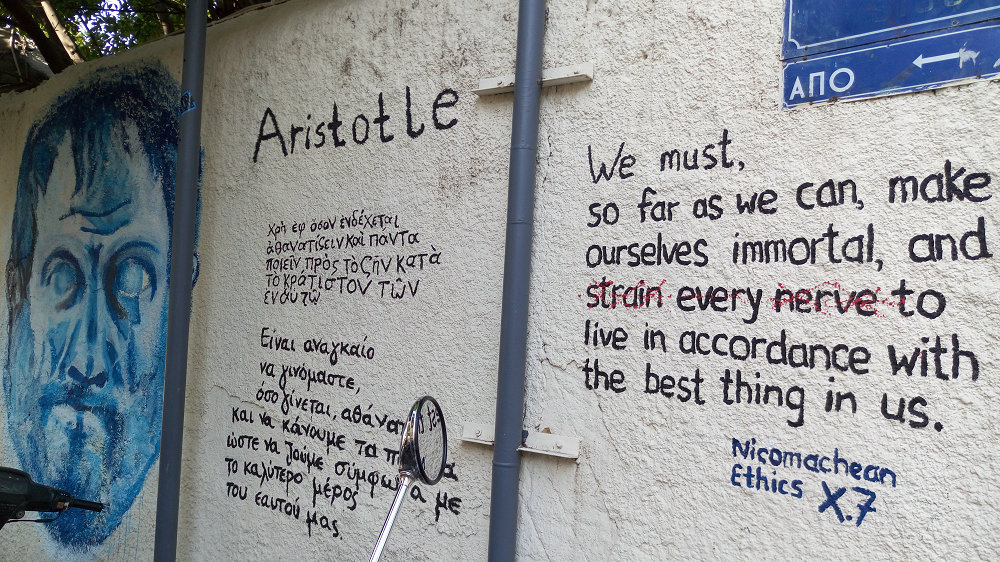 Aristotle
χρὴ ἐφ ὅσον ἐνδέχεται
ἀθανατίζειν καὶ παντα
ποιεῖν πρὸς τὸ ζῆν κατὰ
τὸ κράτιστον τῶν
ἐν αὑτῷ
Είναι αναγκαίο
να γινόμαστε,
όσο γίνεται,
και να κάνουμε τα
ώστε να ζούμε με
το καλύτερο μέρος
του εαυτού μας.
ΑΠΟ
We must,
so far as we can, make
ourselves immortal, and
strain every nerve to
live in accordance with
the best thing in us.
Nicomachean
Ethics X.7